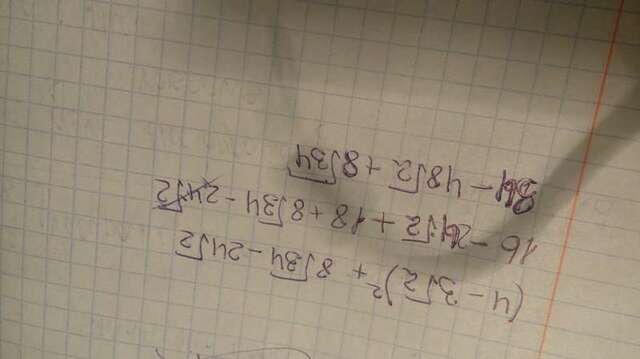 (4 - 3√2)² + 8√34 - 24√2
16 - 24√2 + 18 + 8√34 - 24√2
34 - 48√2 + 8√34